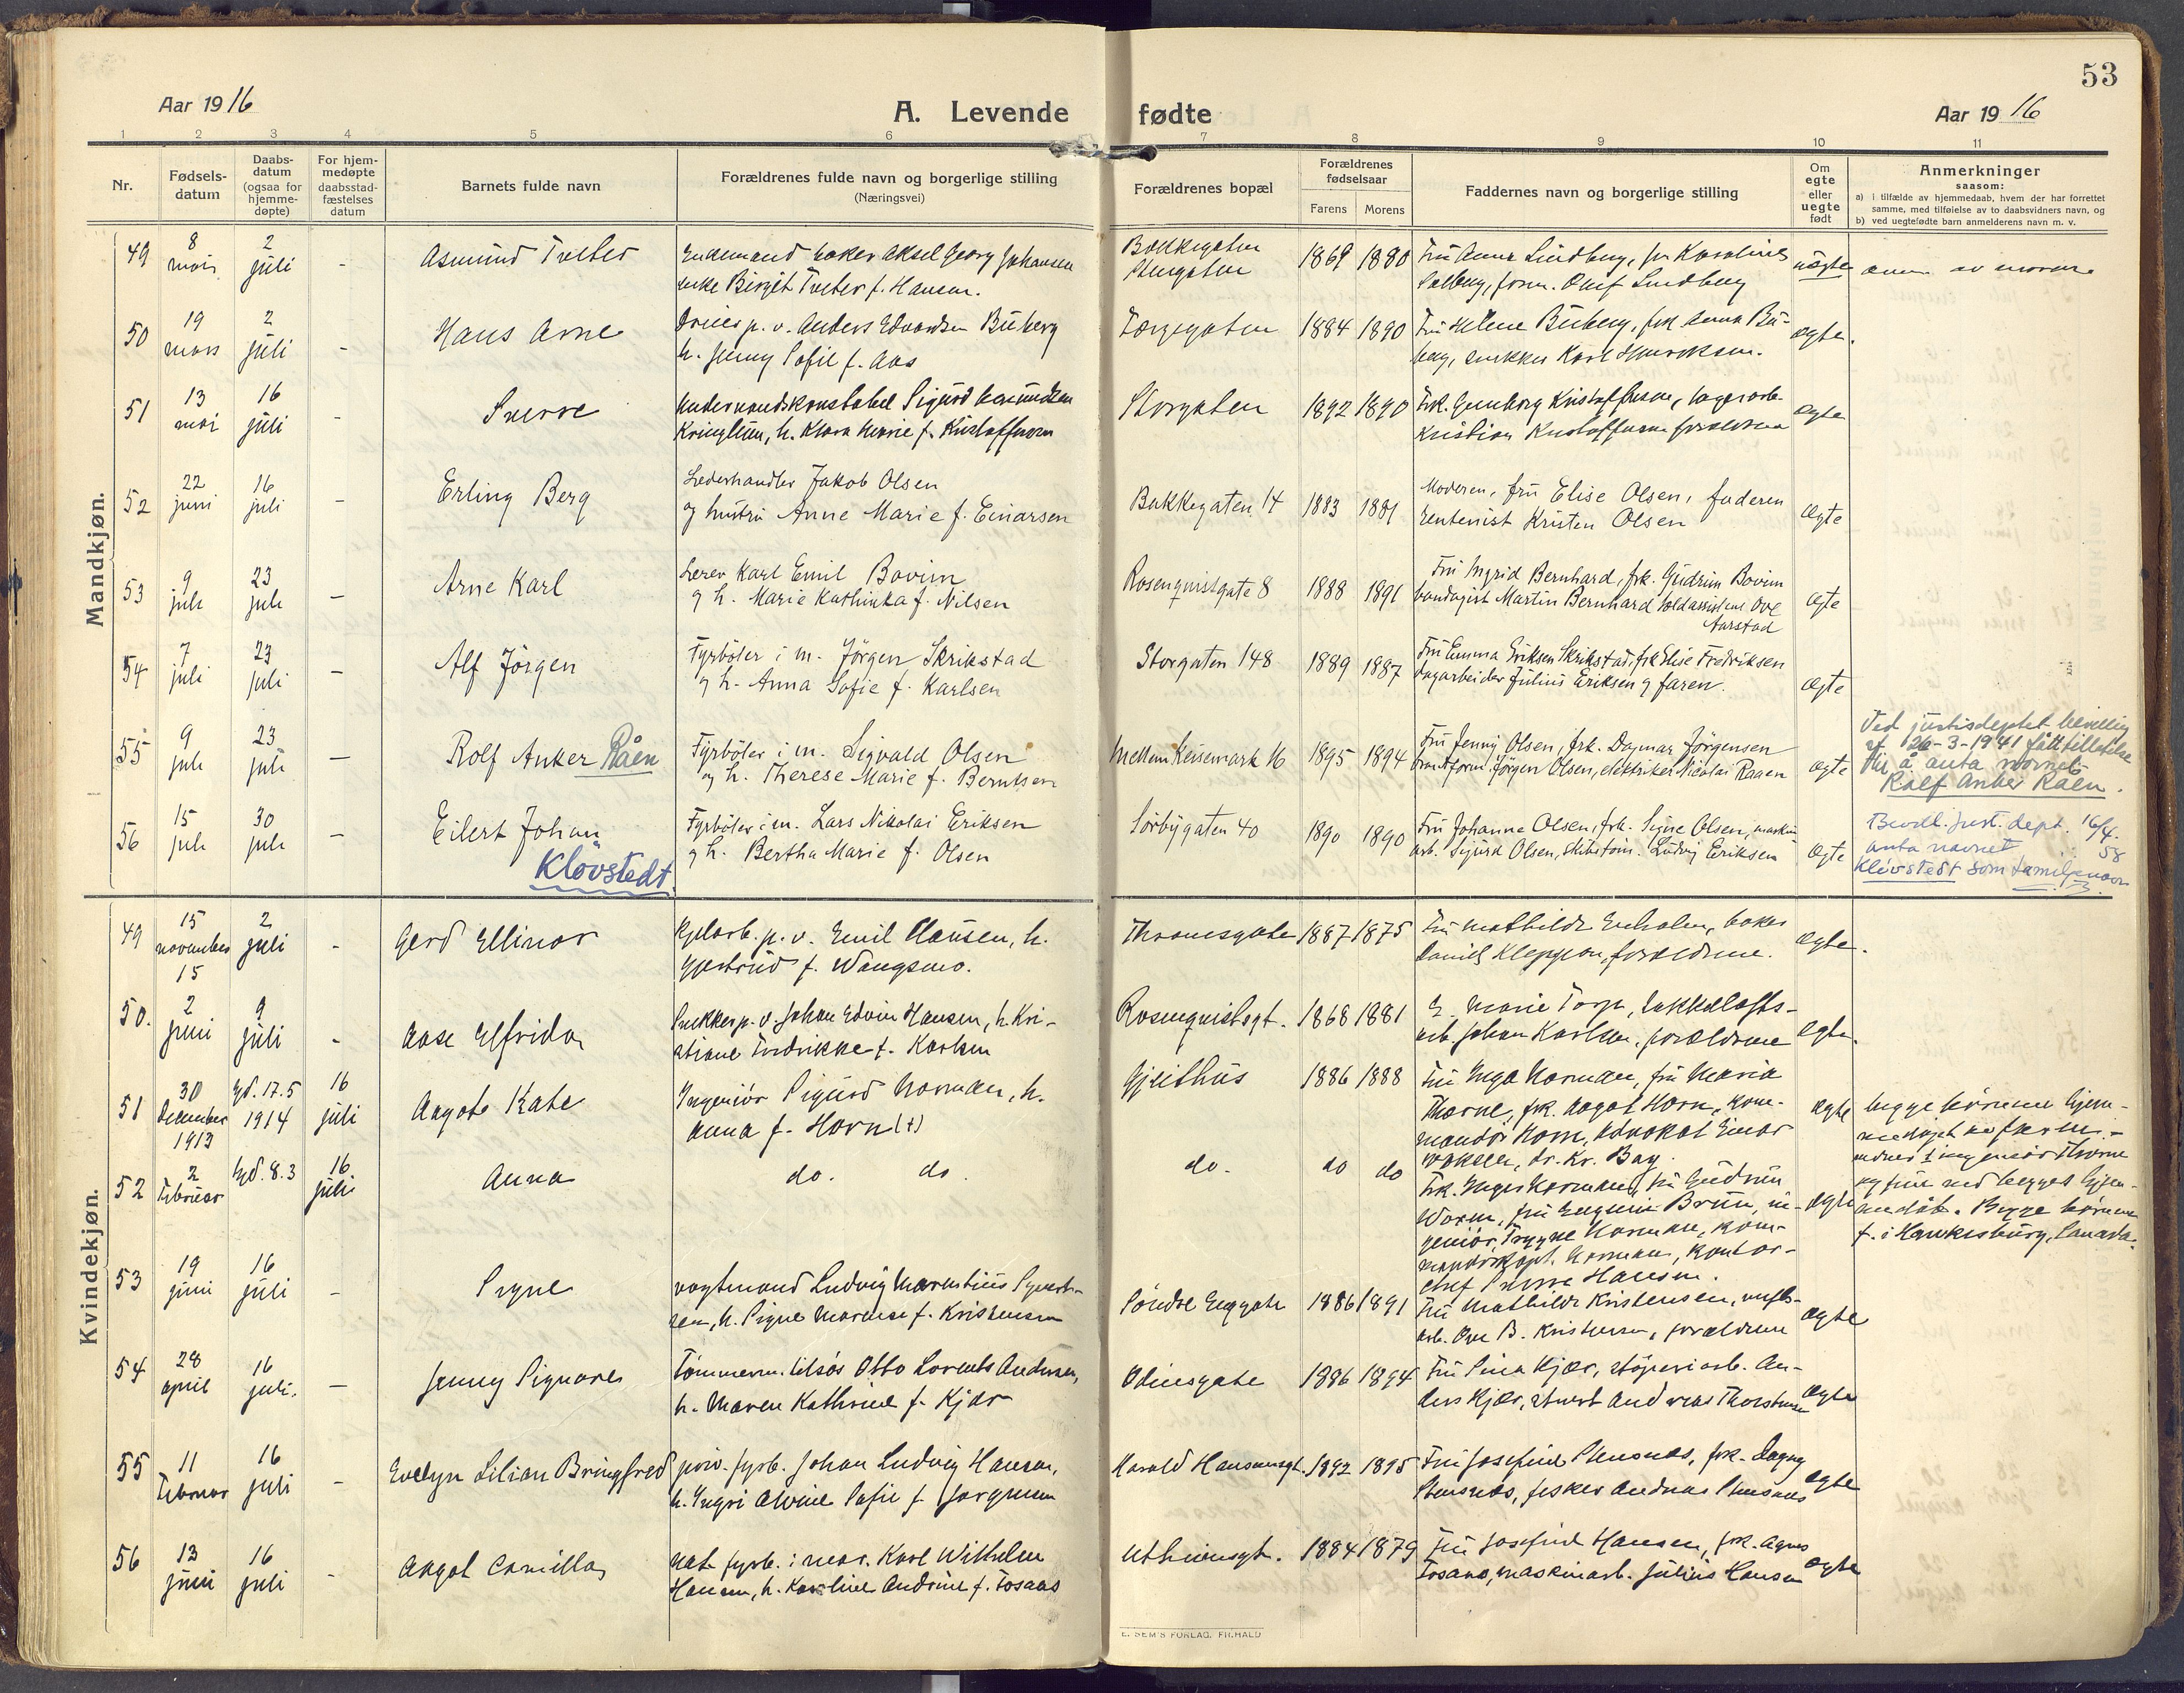 53
Aar 1916
A. Levende fødte
Aar 1916
1 2 3 4 5 6 7 8 9 10 11
Nr.
Fødsels-
datum
Daabs-
datum
(ogsaa for
hjemme-
døpte)
For hjem-
medøpte
daabsstad-
fæstelses
datum
Barnets fulde navn
Forældrenes fulde navn og borgerlige stilling
(Næringsvei)
Forældrenes bopæl
Forældrenes
fødselsaar
Farens Morens
Faddernes navn og borgerlige stilling
Om
egte
eller
uegte
født
Anmerkninger
saasom:
a) i tilfælde av hjemmedaab, hvem der har forrettet
samme, med tilføielse av to daabsvidners navn, og
b) ved uegtefødte barn anmelderens navn m. v.
Mandkjøn.
49 8 mars 2 juli - Asmund Tveter
Enkemand baker Aksel Georg Johansen
enke Birgit Tveter f. Hansen.
Bakkegaten
Stengaten
1869 1880
Fru Anna Lindberg, fru Karoline
Solberg, form. Oluf Lindberg
uægte
anm av moren
50 19 mars 2 juli - Hans Arne
p. v. Anders Edvardsen Buberg
h. Jenny Sofie f. Aas
Torvegaten 1884 1890
Fru Helene Buberg, frk Anna Bu-
berg, snekker Karl Henriksen.
ægte.
51 13 mai 16 juli - Sverre
Underkonstabel Sigurd
h. Klara Marie f. Kristoffersen
Storgaten 1892 1890
Frk. Gunborg Kristoffersen, lagerarb.
Kristian Kristoffersen forældrene
ægte
52 22 juni 16 juli - Erling Berg
Læderhandler Jakob Olsen
og hustru Anne Marie f. Einarsen
Bakkegaten 14 1883 1881
Moderen, fru Elise Olsen, faderen
rentenist Kristen Olsen
Ægte
53 9 juli 23 juli - Arne Karl
Lærer Karl Emil Bovim
og h. Marie Kathinka f. Nilsen
Rosenqvistgate 8 1888 1891
Fru Ingrid Bernhard, frk. Gudrun Bovim
bandagist Martin Bernhard toldassistent Ove
Aarstad
Ægte
54 7 juli 23 juli - Alf Jörgen
Fyrböter i m. Jörgen Skrikstad
og h. Anna Sofie f. Karlsen
Storgaten 148 1889 1887
Fru Emma Eriksen Skrikstad, frk Elise Fredriksen
dagarbeider Julius Eriksen og faren.
Ægte
55 9 juli 23 juli - Rolf Anker Råen
Fyrböter i m. Sigvald Olsen
og h. Therese Marie f. Berntsen
Mellem Keisemark 16 1895 1894
Fru Jenny Olsen, frk. Dagmar Jörgensen
Jörgen Olsen, elektriker Nicolai Raaen
Ægte
Ved justisdeptet bevilling
af 26-3-1941 fått tillatelse
til å anta navnet
Rolf Anker Råen.
56 15 juli 30 juli - Eilert Johan
Klövstedt
Fyrböter i m. Lars Nikolai Eriksen
og h. Bertha Marie f. Olsen
Sörbygaten 40 1890 1890
Fru Johanne Olsen, frk. Signe Olsen, maskin
arb. Sigurd Olsen, skibstöm. Ludvig Eriksen
Ægte
Bevill. just. dept. 16/4.
anta navnet 58
Klövstedt som familjenavn
Kvindekjøn.
49 15 november 15 2 juli - Gerd Ellinor
p. v. Emil Clausen, h.
Gjertrud f. Wangsmo.
Thranesgate 1887 1875
Fru Mathilde Enholm, baker
Daniel Kleppen, forældrene.
ægte.
50. 2 juni 9 juli - Aase Elfrida
Snekker p. v. Johan Edvin Hansen, h. Kri-
stiane Fredrikke f. Karlsen
Rosenqvistsgt. 1868 1881
E. Marie Torp,
arb. Johan Karlsen, forældrene
ægte.
51 30 December 1913 hjd. 17.5 1914 16 juli Aagot Kate
Ingeniör Sigurd Norman, h.
Anna f. Horn (†)
Gjeithus 1886 1888
Fru Inga Norman, fru Maria
Thorne, frk. Aagot Horn, kom-
mandör Horn, Advokat Einar
dr. Kr. Bay.
ægte
begge börnene hjem-
medöpt
ingeniör Thorne
og frue ved begges hjem-
medåb. Begge börnene
f. i Hawkesbury, Canada.
52 2 Februar hjd. 8.3 16 juli Anna
do. do.
do. do do
Frk. Inger Norman, fru Gudrun
Worm, fru Eugenie Brun, in-
geniör Trygve Norman, kom-
mandörkapt. Norman, kontor-
chef Sverre Hansen.
ægte
53 19 juni 16 juli - Signe
vogtmand Ludvig
h. Signe f. Kristensen
Söndre Enggate 1886 1891
Fru Mathilde Kristensen,
arb. Ove B. Kristensen, forældrene
ægte
54 28 april 16 juli. - Jenny Signora
Tömmerm. tilsjös Otto Lorents Andersen,
h. Maren Kathrine f. Kjær
Odinsgate 1886 1894
Fru Sina Kjær, stöperiarb. An-
ders Kjær, stuert Andreas Thorstensen
ægte
55 11 Februar 16 juli - Evelyn Lilian Bringfred
prov. fyrb. Johan Ludvig Hansen,
h. Ingri Alvine Sofie f. Jörgensen
Harald Hansensgt. 1892 1895
Fru Josefine Stensnæs, frk. Dagny
Stensnæs, fisker Andreas Stensnæs
ægte
56 13 juni 16 juli - Aagot Camilla
mat. fyrb. i mar. Karl Wilhelm
Hansen, h. Karoline Andrine f. Fosaas
1884 1879
Fru Josefine Hansen, frk. Agnes
Fosaas, maskinarb. Julius Hansen
ægte
E. SEM'S FORLAG, FR.HALD